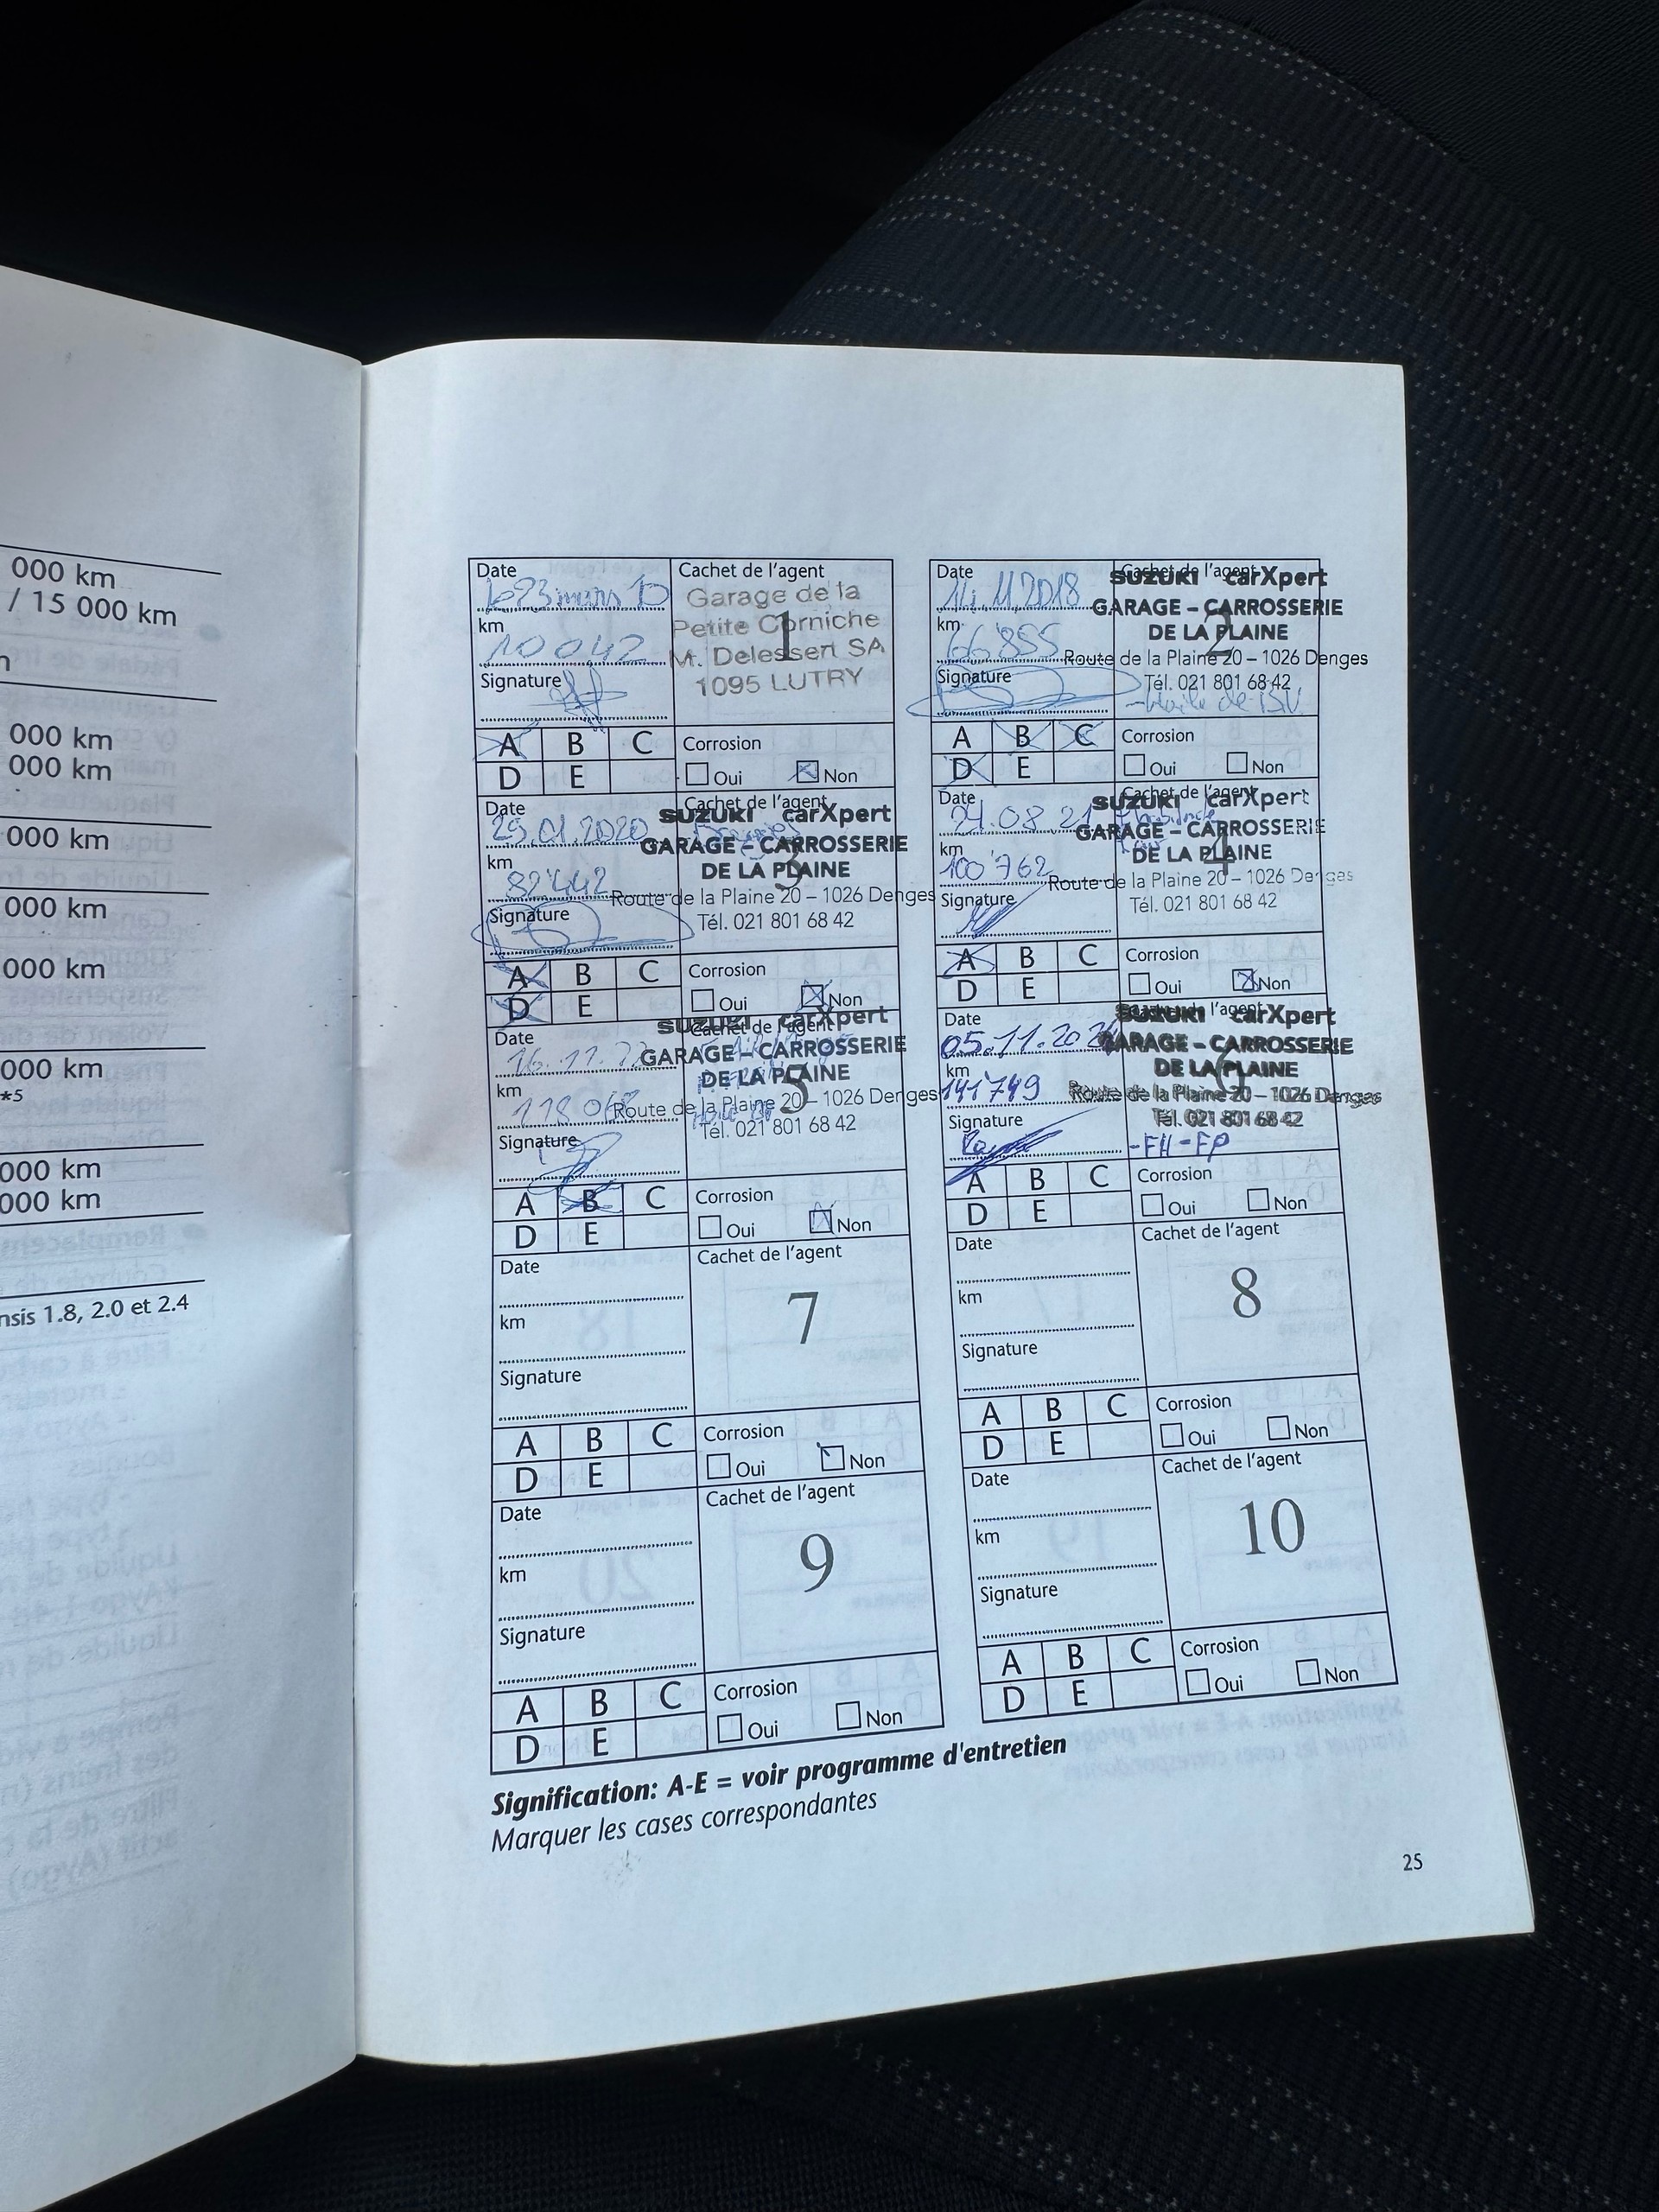 000 km
/ 15 000 km
000 km
000 km
000 km
000 km
000 km
000 km
*5
000 km
000 km
nsis 1.8, 2.0 et 2.4
Date
23 mars 10
km
10042
Signature
Cachet de l'agent
Garage de la
Petite Corniche
M. Delessert SA
1095 LUTRY
1
A B C
D E
Corrosion
Oui Non
Date
14.11.2018
km
66'855
Signature
Cachet de l'agent
SUZUKI carXpert
GARAGE – CARROSSERIE
DE LA PLAINE
2
Route de la Plaine 20 – 1026 Denges
Tél. 021 801 68 42
- Huile de BV
A B C
D E
Corrosion
Oui Non
Date
29.01.2020
km
82'442
Signature
Cachet de l'agent
SUZUKI carXpert
GARAGE – CARROSSERIE
DE LA PLAINE
3
Route de la Plaine 20 – 1026 Denges
Tél. 021 801 68 42
A B C
D E
Corrosion
Oui Non
Date
08 21
km
100'762
Signature
Cachet de l'agent
SUZUKI carXpert
GARAGE – CARROSSERIE
DE LA PLAINE
4
Route de la Plaine 20 – 1026 Denges
Tél. 021 801 68 42
A B C
D E
Corrosion
Oui Non
Date
16.11.22
km
118
Signature
Cachet de l'agent
SUZUKI carXpert
GARAGE – CARROSSERIE
DE LA PLAINE
5
Route de la Plaine 20 – 1026 Denges
Tél. 021 801 68 42
A B C
D E
Corrosion
Oui Non
Date
05.11.2024
km
141'749
Signature
Cachet de l'agent
SUZUKI carXpert
GARAGE – CARROSSERIE
DE LA PLAINE
6
Route de la Plaine 20 – 1026 Denges
Tél. 021 801 68 42
-FH -FP
A B C
D E
Corrosion
Oui Non
Date
km
Signature
Cachet de l'agent
7
A B C
D E
Corrosion
Oui Non
Date
km
Signature
Cachet de l'agent
8
A B C
D E
Corrosion
Oui Non
Date
km
Signature
Cachet de l'agent
9
A B C
D E
Corrosion
Oui Non
Date
km
Signature
Cachet de l'agent
10
A B C
D E
Corrosion
Oui Non
Signification: A-E = voir programme d'entretien
Marquer les cases correspondantes
25